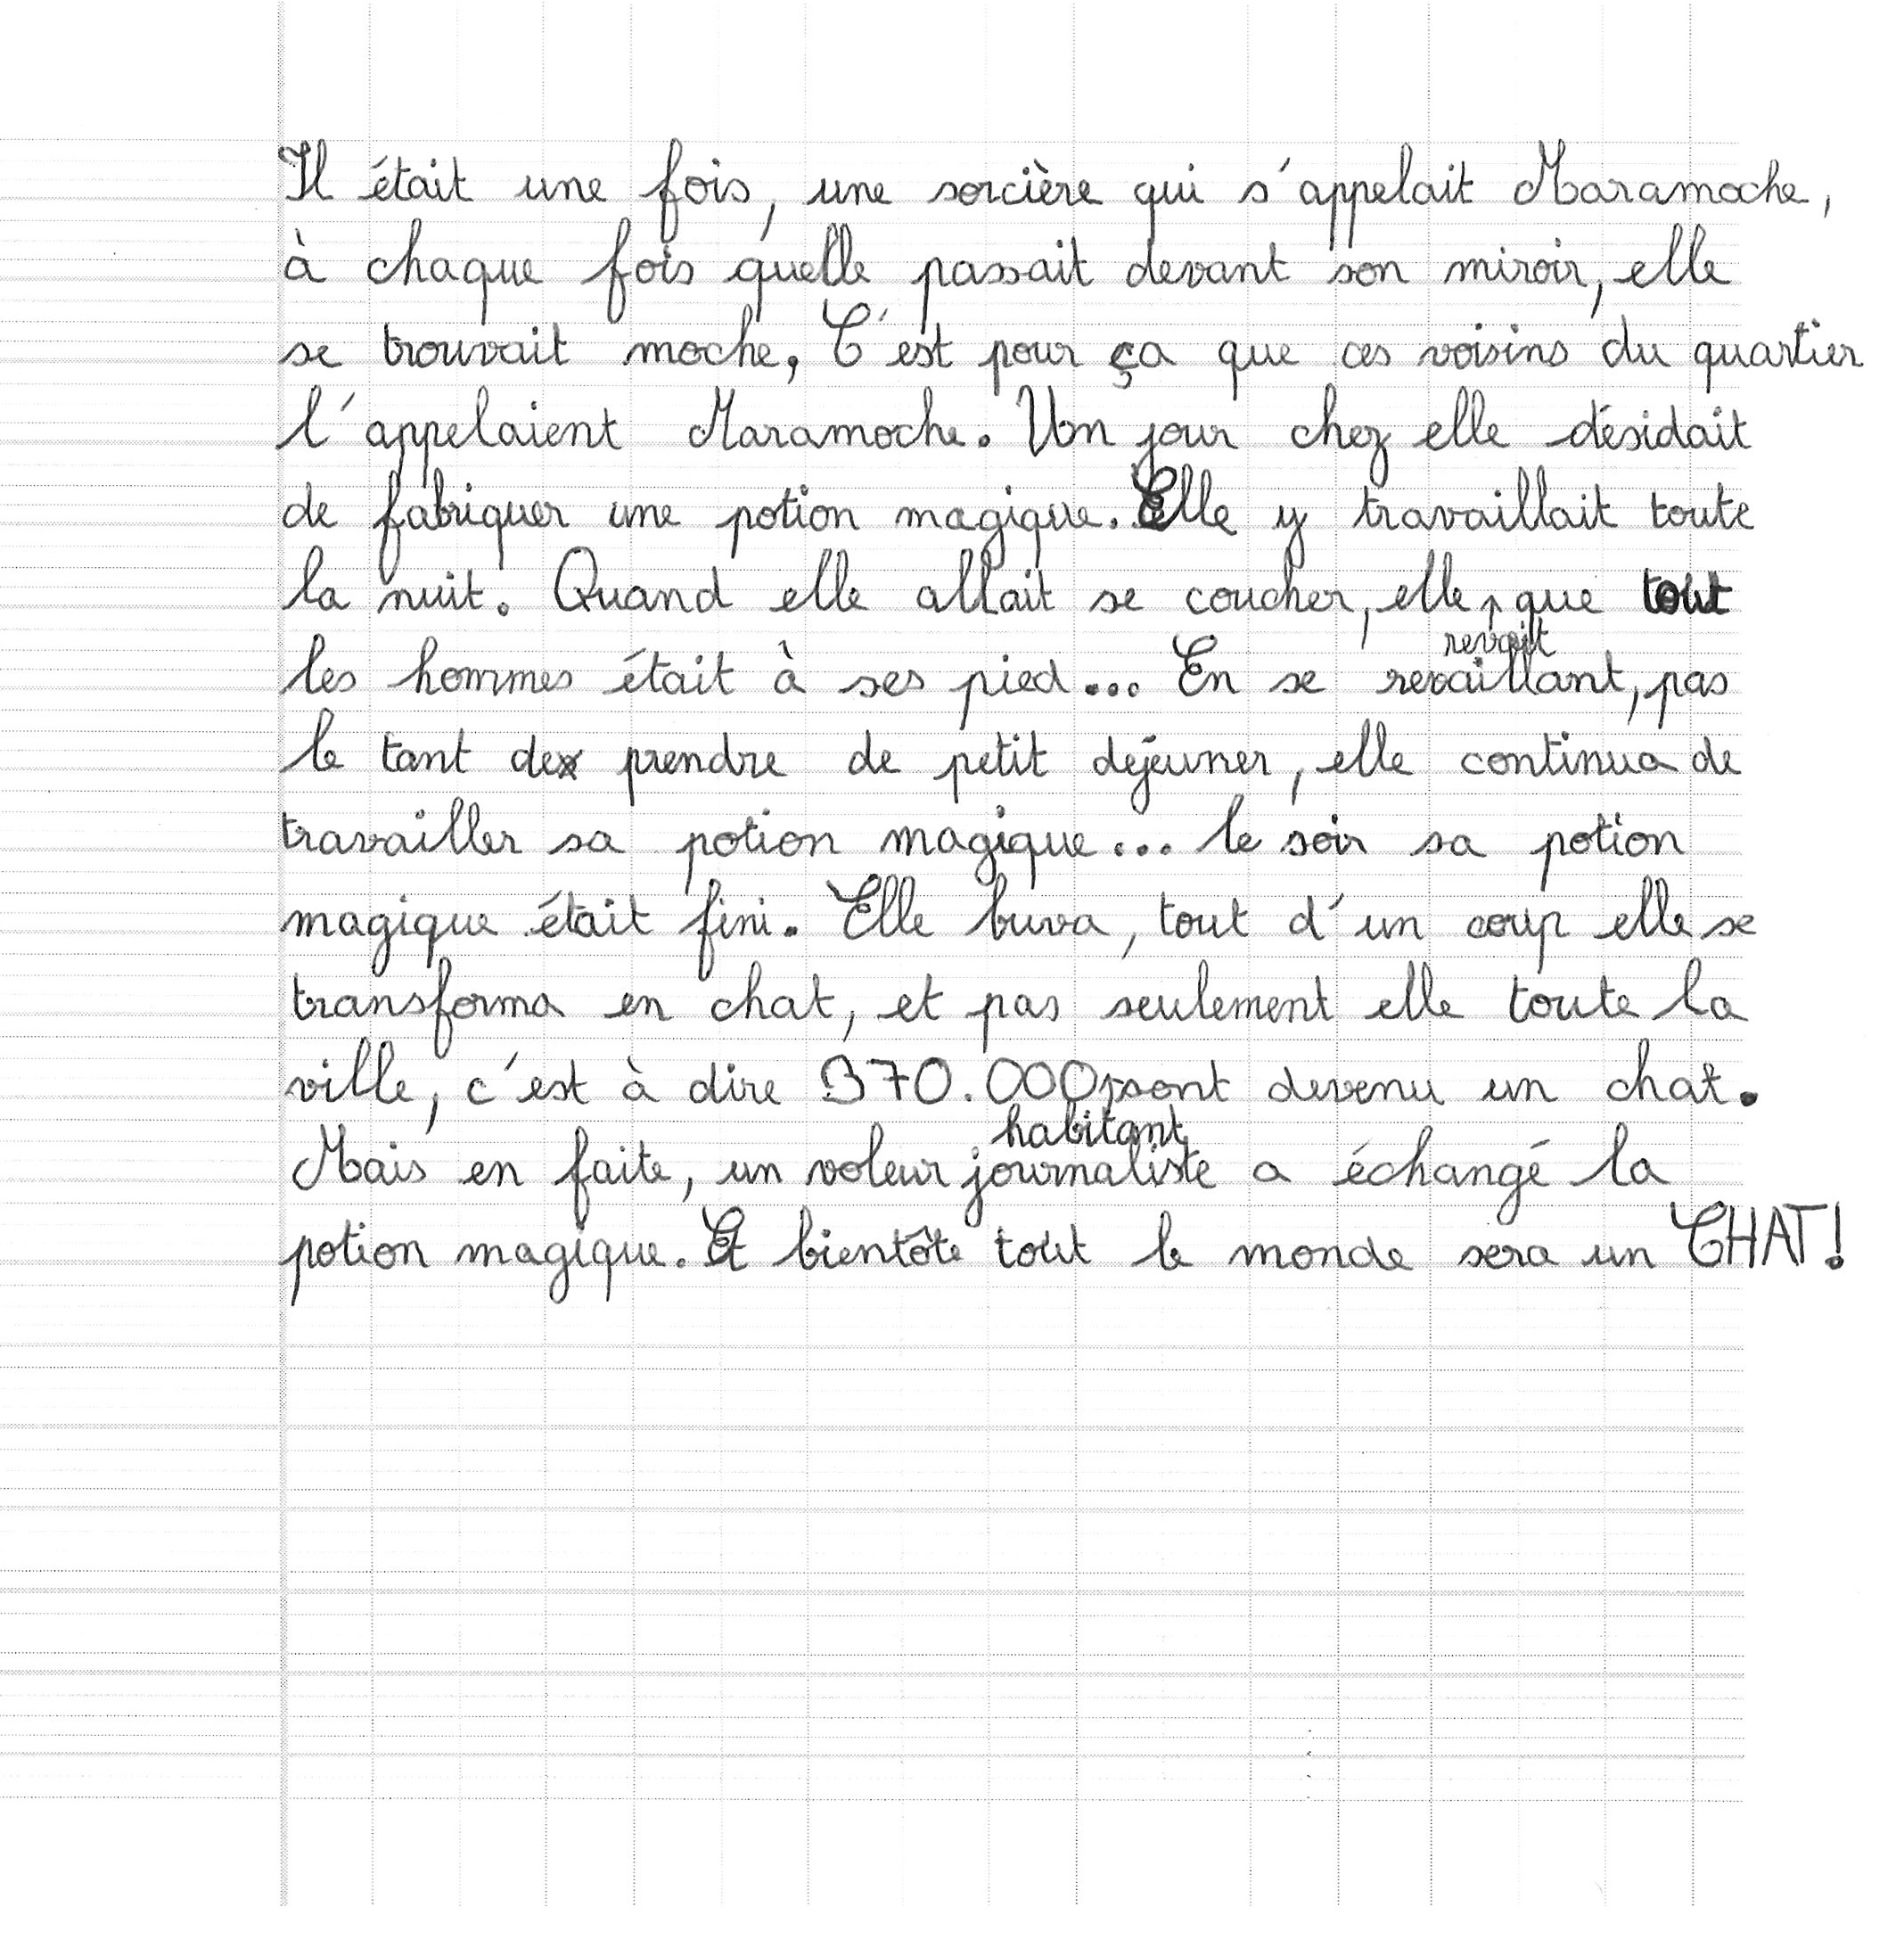 Il était une fois, une sorcière qui s'appelait Maramoche,
à chaque fois quelle passait devant son miroir, elle
se trouvait moche, C'est pour ça que ces voisins du quartier
l'appelaient Maramoche. Un jour chez elle désidait
de fabriquer une potion magique. Elle y travaillait toute
la nuit. Quand elle allait se coucher, elle revait que tout
les hommes était à ses pied... En se revaillant, pas
le tant de prendre de petit déjeuner, elle continua de
travailler sa potion magique... le soir sa potion
magique était fini. Elle buva, tout d'un coup elle se
transforma en chat, et pas seulement elle toute la
ville, c'est à dire 370.000 habitant sont devenu un chat.
Mais en faite, un voleur journaliste a échangé la
potion magique. Et bientôte tout le monde sera un CHAT!